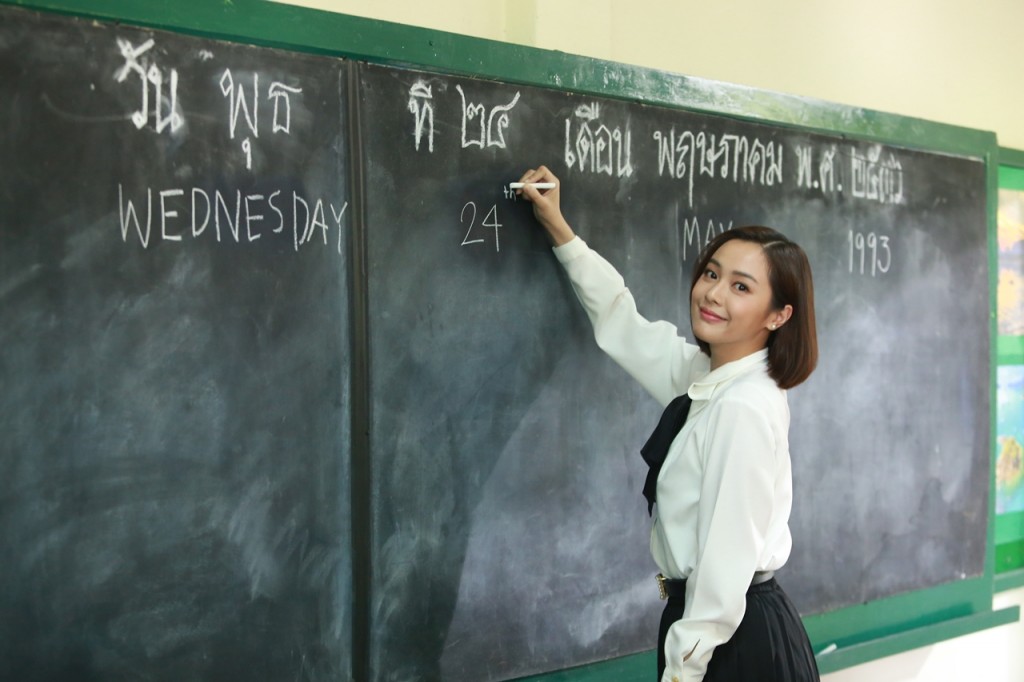 วัน พุธ ที่ ๒๔ เดือน พฤษภาคม พ.ศ. ๒๕๓๖
WEDNESDAY 24 th MAY 1993